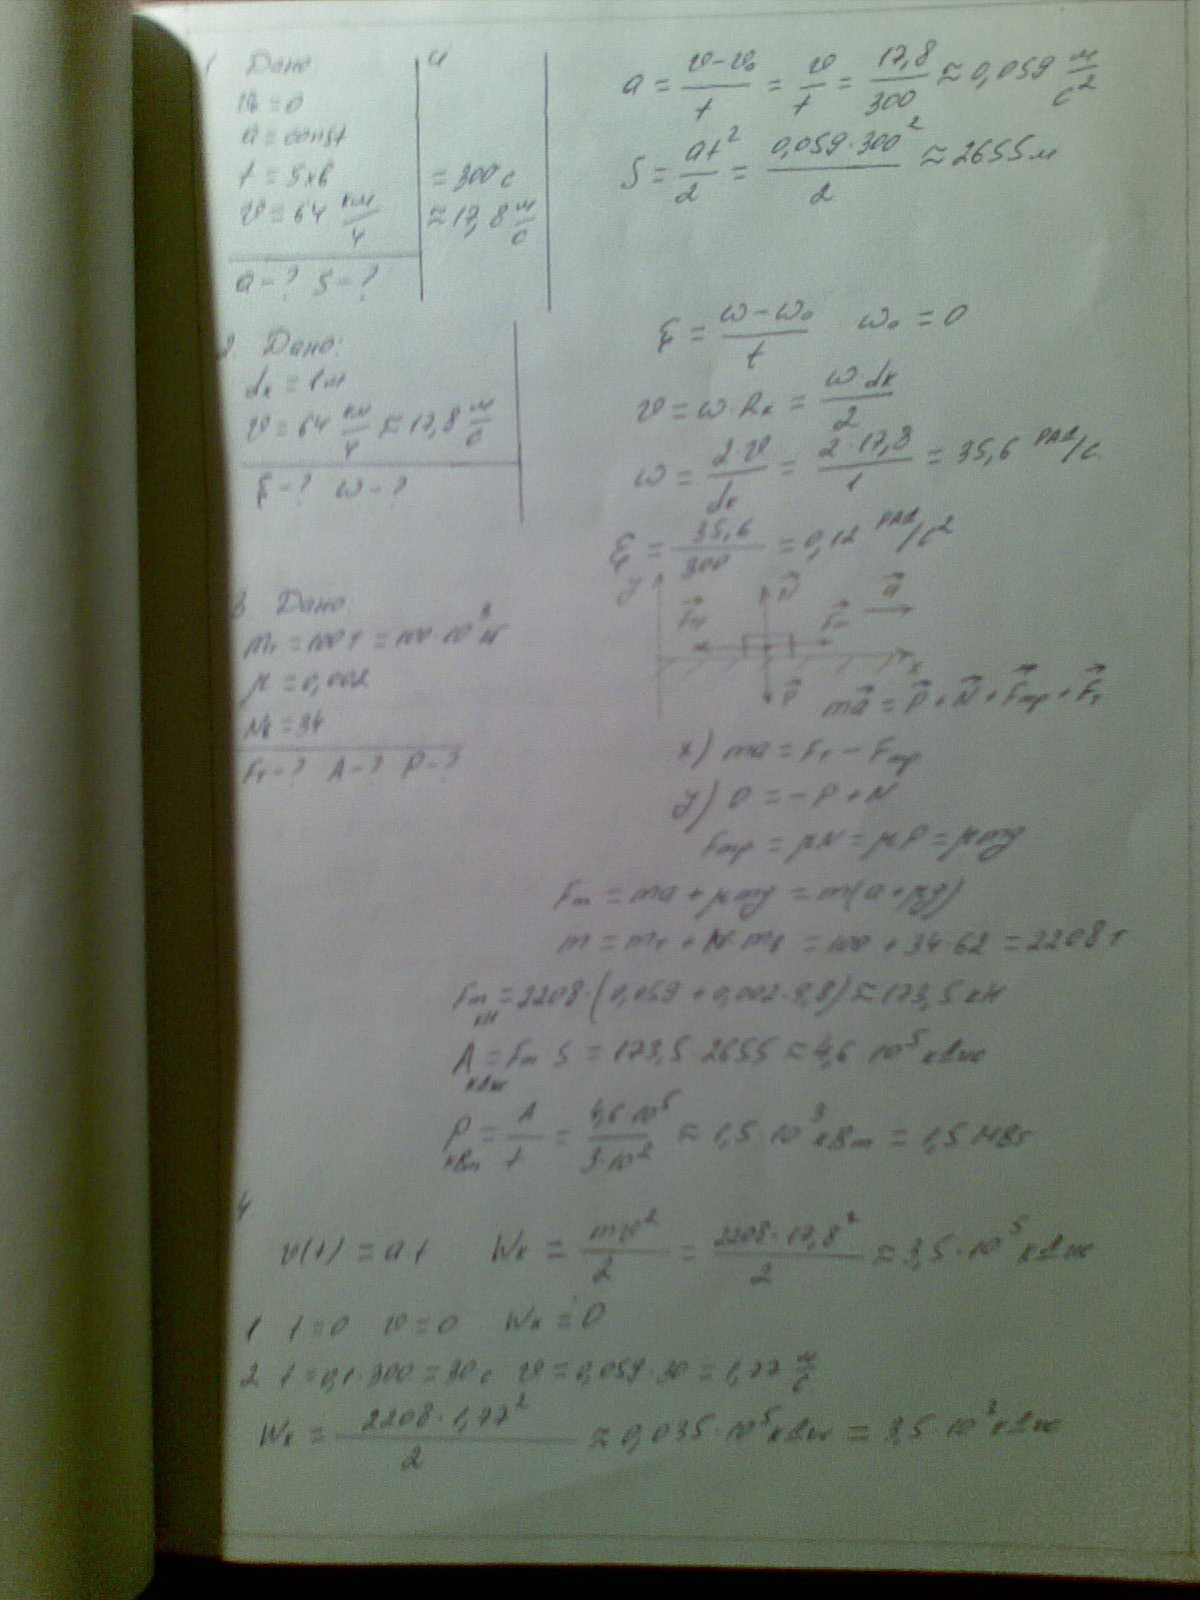 1 Дано
v₀ = 0
a = const
t = 5 хв = 300 с
v = 64 км/ч ≈ 17,8 м/с
a - ? S - ?
a = (v - v₀)/t = v/t = 17,8/300 ≈ 0,059 м/с²
S = at²/2 = 0,059·300²/2 ≈ 2655 м
2 Дано:
dк = 1 м
v = 64 км/ч ≈ 17,8 м/с
ξ - ? ω - ?
ξ = (ω - ω₀)/t ω₀ = 0
v = ω·Rк = ω·dк/2
ω = 2v/dк = 2·17,8/1 = 35,6 РАД/с
ξ = 35,6/300 = 0,12 РАД/с²
3 Дано
mт = 100 т = 100·10³ кг
μ = 0,002
Nв = 34
Fт - ? A - ? P - ?
y N Fтр Fт a
x P
ma = P + N + Fтр + Fт
x) ma = Fт - Fтр
y) 0 = -P + N
Fтр = μN = μP = μmg
Fт = ma + μmg = m(a + μg)
m = mт + N·mв = 100 + 34·62 = 2208 т
Fт = 2208·(0,059 + 0,002·9,8) ≈ 173,5 кН
кН
A = Fт S = 173,5·2655 ≈ 4,6·10⁵ кДж
кДж
P = A/t = 4,6·10⁵/3·10² ≈ 1,5·10³ кВт = 1,5 МВт
кВт
4
v(t) = a t Wк = mv²/2 = 2208·17,8²/2 ≈ 3,5·10⁵ кДж
1 t = 0 v = 0 Wк = 0
2 t = 0,1·300 = 30 с v = 0,059·30 = 1,77 м/с
Wк = 2208·1,77²/2 ≈ 0,035·10⁵ кДж = 3,5·10³ кДж